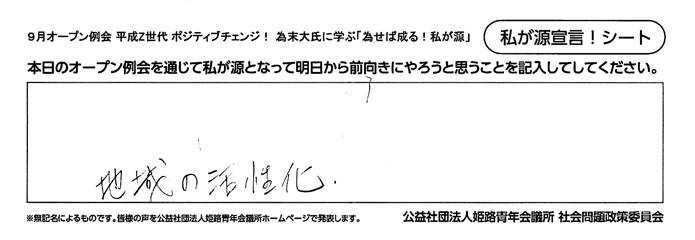 9月オープン例会 平成Z世代 ポジティブチェンジ! 為末大氏に学ぶ「為せば成る!私が源」
私が源宣言!シート
本日のオープン例会を通じて私が源となって明日から前向きにやろうと思うことを記入してしてください。
地域の活性化.
※無記名によるものです。皆様の声を公益社団法人姫路青年会議所ホームページで発表します。
公益社団法人姫路青年会議所 社会問題政策委員会